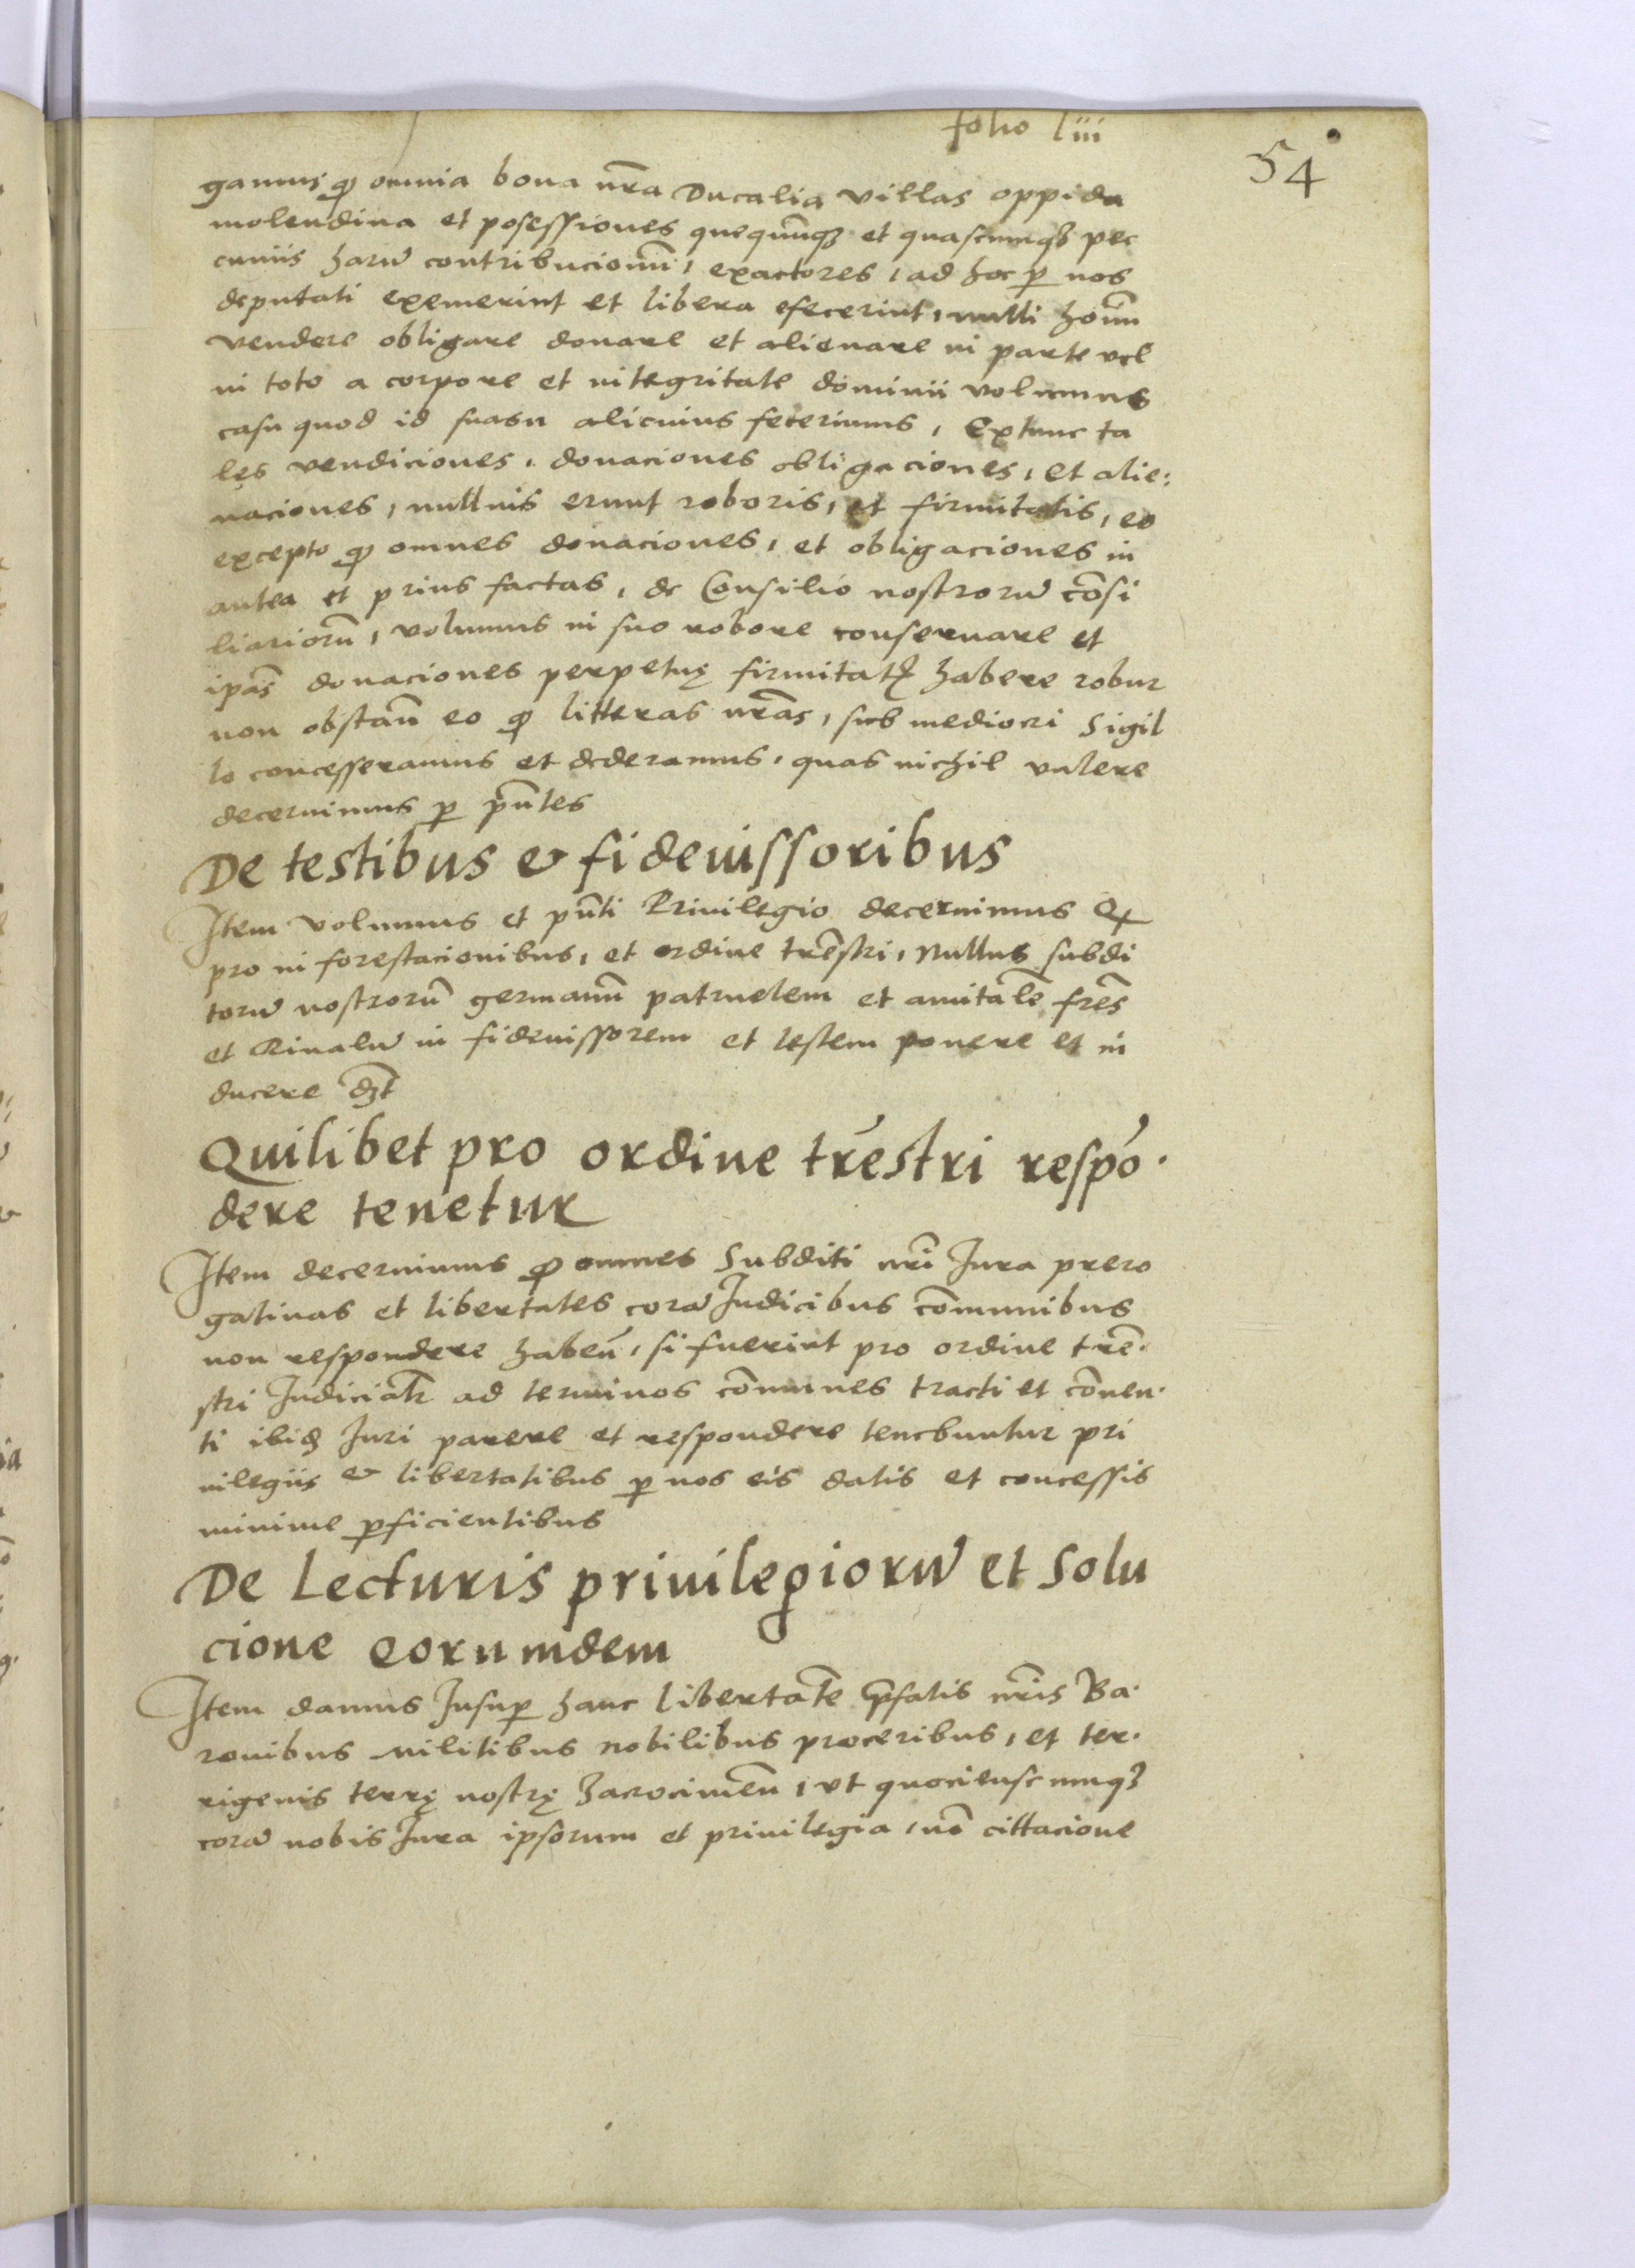 folio liii
54
gamus ꝙ omnia bona nr̃a Ducalia villas oppida
molendina et posessiones quequũqꝫ et quascumqꝫ pec
cuniis harũ contribucionũ, exactores, ad hoc ꝑ nos
deputati exemerint et libera efecerint, nulli hoĩm
vendere obligare donare et alienare in parte vel
in toto a corpore et integritate dominii volumus
casu quod id suasu alicuius fecerimus, Extunc ta
les vendiciones, donaciones obligaciones, et alie:
naciones, nullius erunt roboris, et firmitatis, eo
excepto ꝙ omnes donaciones, et obligaciones in
antea et prius factas, de Consilio nostrorũ cõsi
liariorũ, volumus in suo robore conseruare et
ipãs donaciones perpetuę firmitatꝭ habere robur
non obstañ eo ꝙ litteras nr̃as, sub mediocri Sigil
lo concesseramus et dederamus, quas nichil valere
decernimus ꝑ pñtes
De testibus & fideiussoribus
Item volumus et pñti Priuilegio decernimus Qꝫ
pro in forestacionibus, et ordine tr̃estri, Nullus subdi
torũ nostrorũ germanũ patruelem et amitalẽ fr̃es
et Riualũ in fideiussorem et testem ponere et in
ducere dꝫt
Quilibet pro ordine tr̃estri respõ.
dere tenetur
Item decernimus ꝙ omnes Subditi nr̃i Jura prero
gatiuas et libertates corã Judicibus cõmunibus
non respondere habeñ, si fuerint pro ordine trẽ.
stri Judicialr̃ ad terminos cõmunes tracti et cõuen.
ti ibid̃ Juri parere et respondere tenebuntur pri
uilegiis & libertatibus ꝑ nos eis datis et concessis
minime ꝓficientibus
De Lecturis priuilegiorũ et Solu
cione eorumdem
Item damus Insuꝑ hanc libertatẽ p̃fatis nr̃is Ba.
ronibus militibus nobilibus proceribus, et ter.
rigenis terrę nostrę Zatocimeñ, vt quociensc umqꝫ
corã nobis Jura ipsorum et priuilegia, nõ cittacione